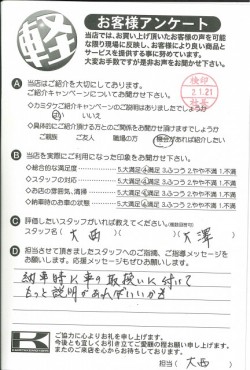 軽
お客様アンケート
当店では、お買い上げ頂いたお客様の声を可能
な限り現場に反映し、お客様により良い商品と
サービスを提供する事に努めています。
大変お手数ですが是非お声をお聞かせ下さい。
検印
2.1.21
社長
A 当店はご紹介を大切にしております。
ご紹介キャンペーンについてお聞かせ下さい。
◇カミタケご紹介キャンペーンのご説明はありましたでしょうか
はい いいえ
◇具体的にご紹介頂ける方とのご関係をお聞かせ頂けますでしょうか
ご親族 ご友人 職場の方 機会があれば紹介したい
B 当店を実際にご利用になった印象をお聞かせ下さい。
◇総合的な満足度 5.大満足 4.満足 3.ふつう 2.やや不満 1.不満
◇スタッフの対応 5.大満足 4.満足 3.ふつう 2.やや不満 1.不満
◇お店の雰囲気、清掃 5.大満足 4.満足 3.ふつう 2.やや不満 1.不満
◇納車時のお車の状態 5.大満足 4.満足 3.ふつう 2.やや不満 1.不満
C 評価したいスタッフがいれば教えてください。(複数回答可)
スタッフ名( 大西 )( 大澤 )
D 担当させて頂きましたスタッフへのご指摘、ご指導メッセージを
お願いします。応援メッセージもぜひお願いします。
納車時に車の取扱いに付いて
もっと説明があればいいかな
K
ご協力に心よりお礼を申し上げます。
今後とも宜しくお引き立てご愛顧の程お願い申し上げます。
またのご来店を心からお待ちしております。
担当( 大西 )